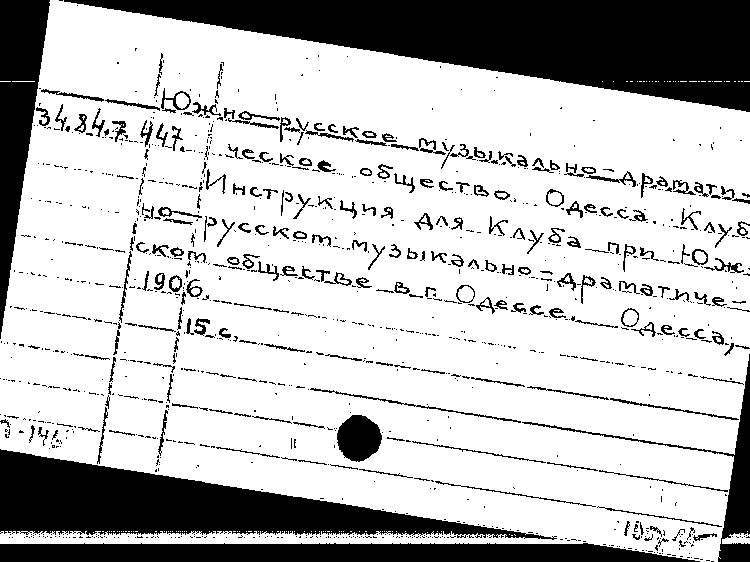 Южно-русское музыкально-драмати-
34.84.7.447. ческое общество. Одесса. Клуб
Инструкция для Клуба при Юж-
но-русском музыкально-драматиче-
ском обществе в г. Одессе. Одесса,
1906.
15 с.